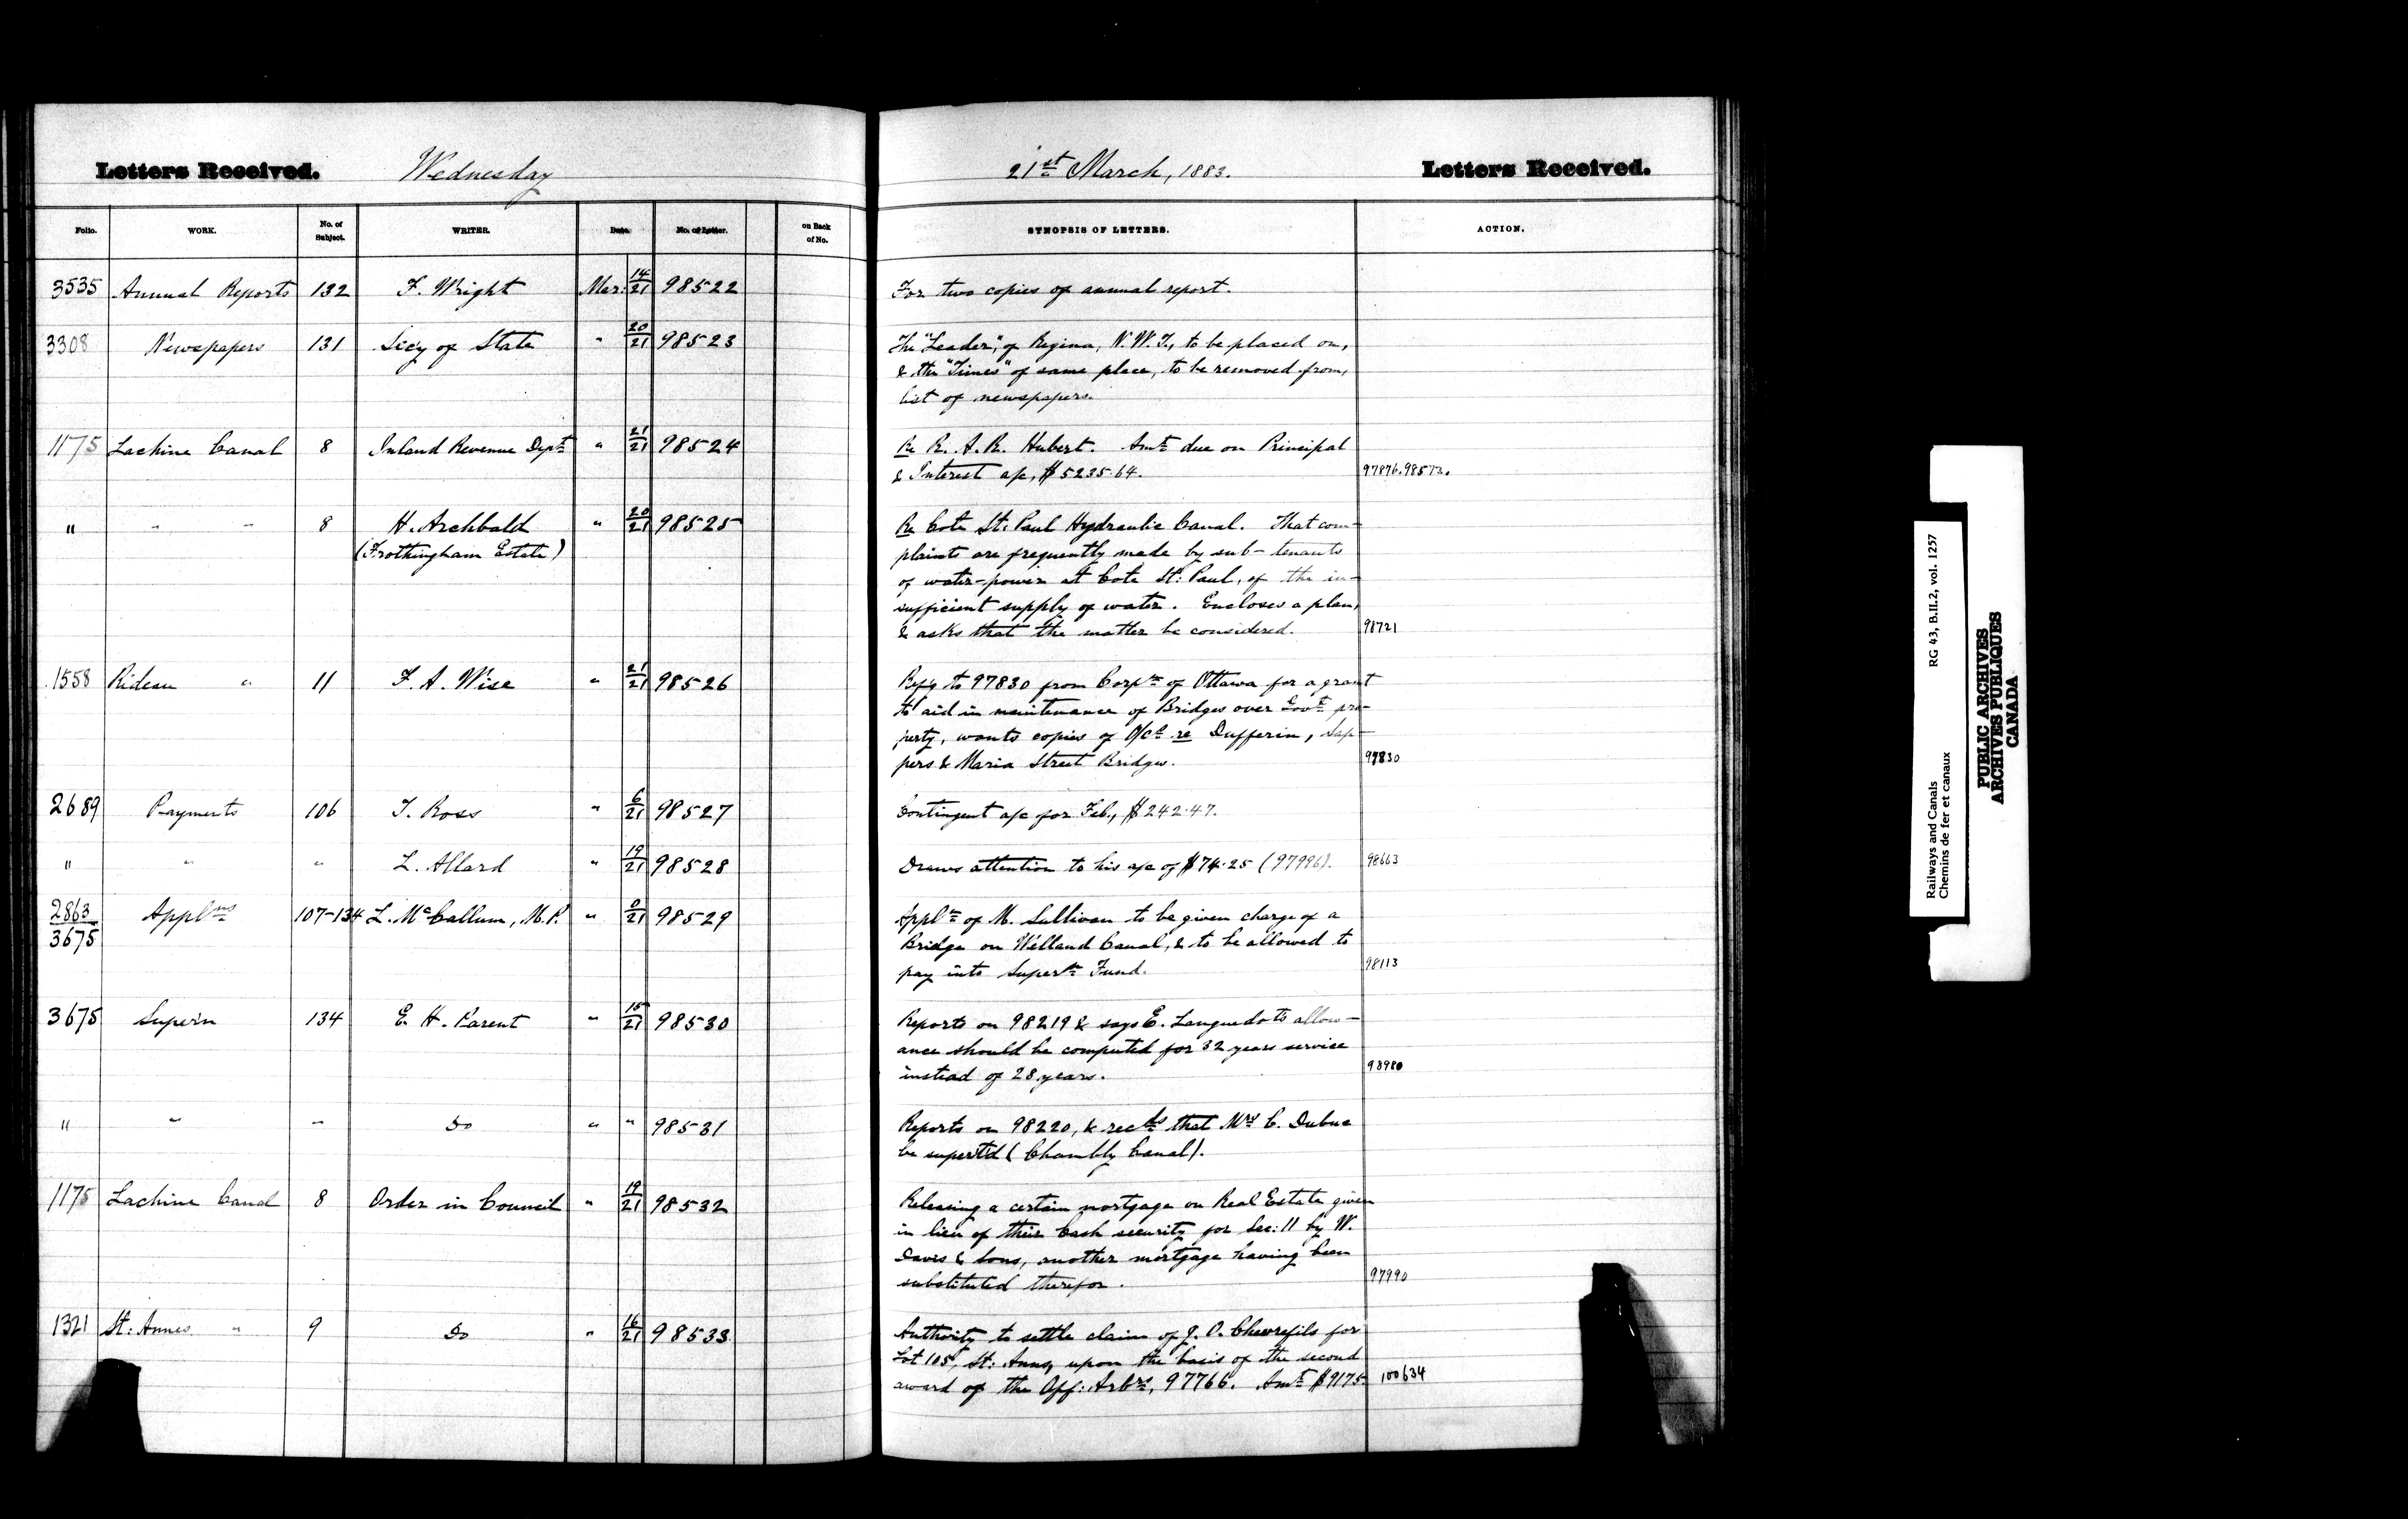 Letters Received. Wednesday 21st March, 1883. Letters Received.
Folio. WORK. No. of Subject. WRITER. Date. No. of Letter. on Back of No. SYNOPSIS OF LETTERS. ACTION.
3535 Annual Reports 132 F. Wright Mar: 14/21 98522 For two copies of annual report.
3308 Newspapers 131 Secy of State " 20/21 98523 The "Leader", of Regina, N.W.T., to be placed on,
& the "Times" of same place, to be removed from,
list of newspapers.
1175 Lachine Canal 8 Inland Revenue Dept " 21/21 98524 Re R. A. R. Hubert. Amt due on Principal
& Interest a/c, $5235.64. 97876. 98573.
" " " 8 H. Archbald " 20/21 98525 Re Cote St. Paul Hydraulic Canal. That com-
(Frothingham Estate) plaints are frequently made by sub-tenants
of water-power at Cote St. Paul, of the in-
sufficient supply of water. Encloses a plan,
& asks that the matter be considered. 98721
1558 Rideau " 11 F. A. Wise " 21/21 98526 Refg to 97830 from Corpn of Ottawa for a grant
to aid in maintenance of Bridges over Govt pro-
perty, wants copies of O/C re Dufferin, Sap-
pers & Maria Street Bridges. 97830
2689 Payments 106 T. Ross " 6/21 98527 Contingent a/c for Feb., $242.47.
" " " L. Allard " 19/21 98528 Draws attention to his a/c of $74.25 (97996). 98663
2863/3675 Applns 107-134 L. McCallum, M.P. " 0/21 98529 Appln of M. Sullivan to be given charge of a
Bridge on Welland Canal, & to be allowed to
pay into Supern Fund. 98113
3675 Supern 134 E. H. Parent " 15/21 98530 Reports on 98219 & says E. Languedots allow-
ance should be computed for 32 years service
instead of 28 years. 98980
" " " Do " " 98531 Reports on 98220, & recds that Mrs C. Dubuc
be supertd (Chambly Canal).
1175 Lachine Canal 8 Order in Council " 19/21 98532 Releasing a certain mortgage on Real Estate given
in lieu of their Cash security for Sec: 11 by W.
Davis & Sons, another mortgage having been
substituted therefor. 97990
1321 St: Annes " 9 Do " 16/21 98533 Authority to settle claim of J. O. Chevrefils for
Lot 105, St: Anns, upon the basis of the second
award of the Off: Arbrs, 97766. Amt $9175. 100634
Railways and Canals RG 43, B.II.2, vol. 1257
Chemins de fer et canaux
PUBLIC ARCHIVES
ARCHIVES PUBLIQUES
CANADA